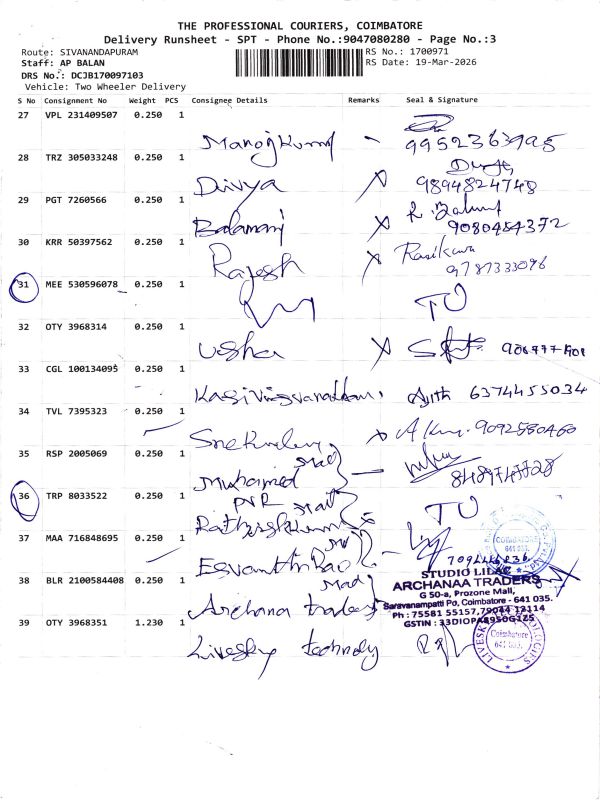 THE PROFESSIONAL COURIERS, COIMBATORE
Delivery Runsheet - SPT - Phone No.:9047080280 - Page No.:3
Route: SIVANANDAPURAM
RS No.: 1700971
Staff: AP BALAN
RS Date: 19-Mar-2026
DRS No.: DCJB170097103
Vehicle: Two Wheeler Delivery
S No Consignment No Weight PCS Consignee Details Remarks Seal & Signature
27 VPL 231409507 0.250 1
Manojkumar 9952363995
28 TRZ 305033248 0.250 1
Divya X 9894824748
29 PGT 7260566 0.250 1
Balamani X 9080454372
30 KRR 50397562 0.250 1
Rajesh X Rasikawa
9787333096
31 MEE 530596078 0.250 1
TO
32 OTY 3968314 0.250 1
Usha X
33 CGL 100134095 0.250 1
Kasivisvanathan, Ajith 6374455034
34 TVL 7395323 0.250 1
X 9092580460
35 RSP 2005069 0.250 1
Muhamed 8489747728
36 TRP 8033522 0.250 1
TO
37 MAA 716848695 0.250 1
38 BLR 2100584408 0.250 1
Archana traders
STUDIO LILAC
ARCHANAA TRADERS
G 50-a, Prozone Mall,
Saravanampatti Po, Coimbatore - 641 035.
Ph : 75581 55157,79044 12114
39 OTY 3968351 1.230 1
Livesky technology
COIMBATORE
641 035.
Coimbatore
641 035.